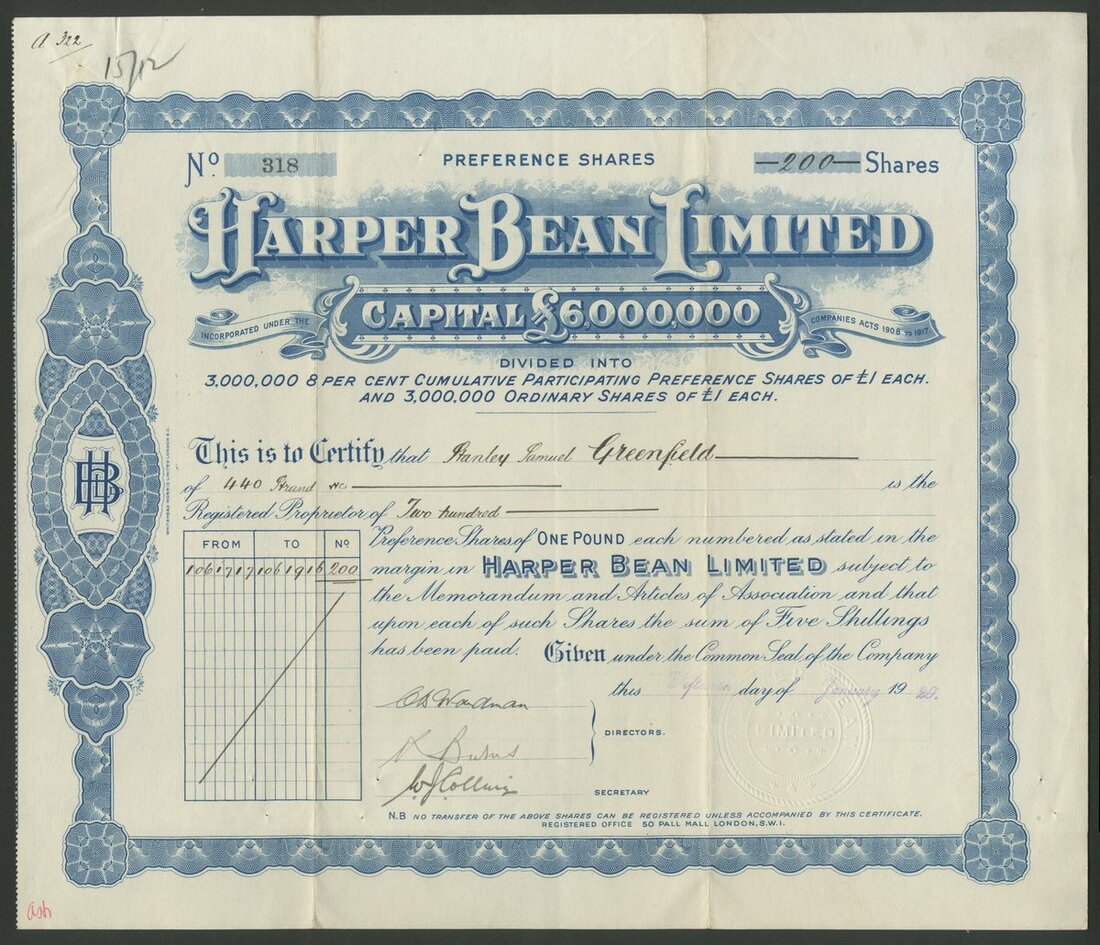 A 322
15/12
No. 318 PREFERENCE SHARES —200— Shares
HARPER BEAN LIMITED
CAPITAL £6,000,000
INCORPORATED UNDER THE COMPANIES ACTS 1908 TO 1917
DIVIDED INTO
3,000,000 8 PER CENT CUMULATIVE PARTICIPATING PREFERENCE SHARES OF £1 EACH.
AND 3,000,000 ORDINARY SHARES OF £1 EACH.
This is to Certify that Stanley Samuel Greenfield
of 440 Strand WC is the
Registered Proprietor of Two hundred
Preference Shares of ONE POUND each numbered as stated in the
margin in HARPER BEAN LIMITED subject to
the Memorandum and Articles of Association and that
upon each of such Shares the sum of Five Shillings
has been paid. Given under the Common Seal of the Company
this day of January 1920.
FROM TO No
1061717 1061916 200
HBL
DIRECTORS.
SECRETARY
LIMITED
N.B NO TRANSFER OF THE ABOVE SHARES CAN BE REGISTERED UNLESS ACCOMPANIED BY THIS CERTIFICATE.
REGISTERED OFFICE 50 PALL MALL LONDON, S.W.1.